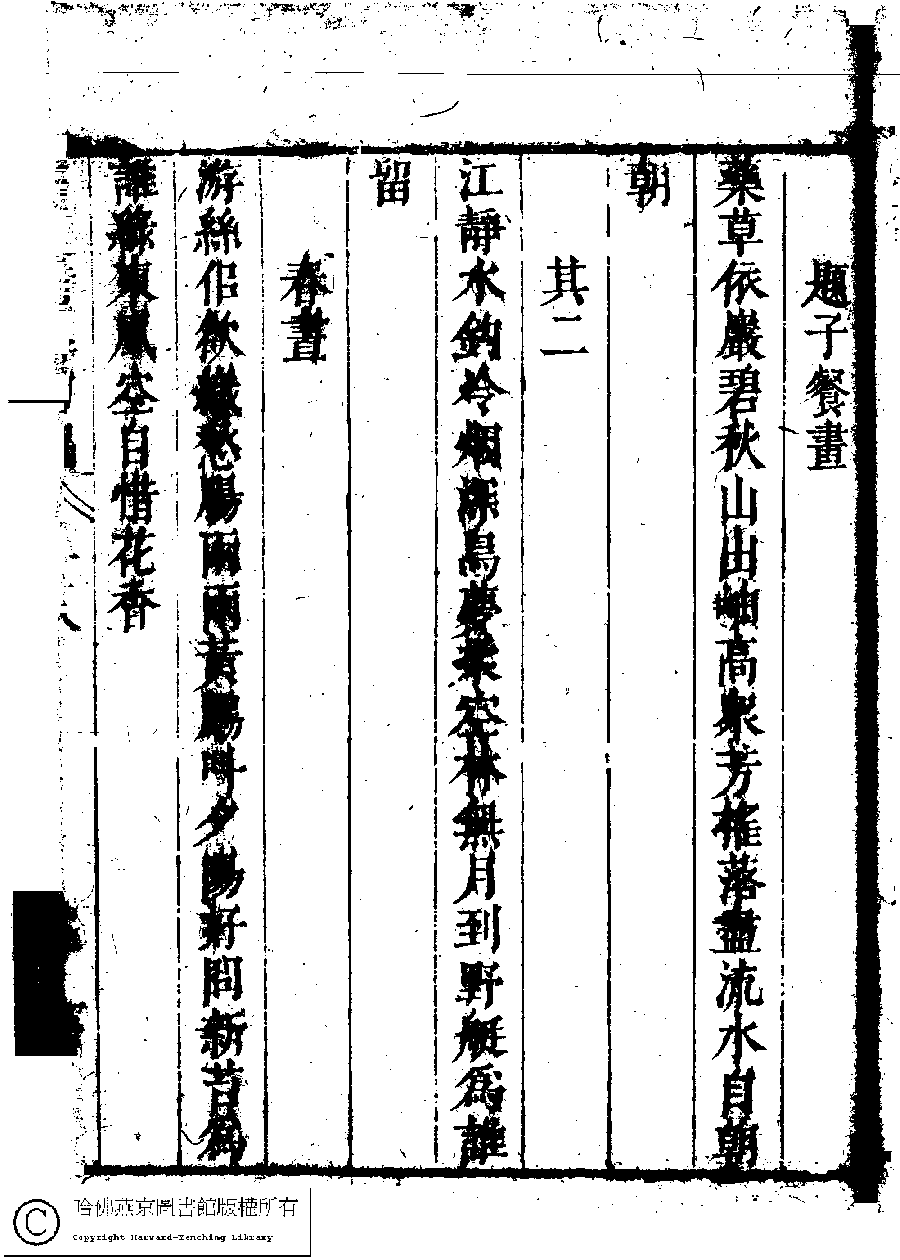 題子餐畫
藥草依巖碧秋山出岫高衆芳摧落盡流水自朝
朝
其二
江靜水鈎冷烟深鳥夢葉空林無月到野艇爲誰
留
春晝
游絲佀欲愁腸兩兩黃鸝呌夕陽好問新昔爲
誰綠東風空自惜花香
哈佛燕京圖書館版權所有
Copyright Harvard-Yenching Library